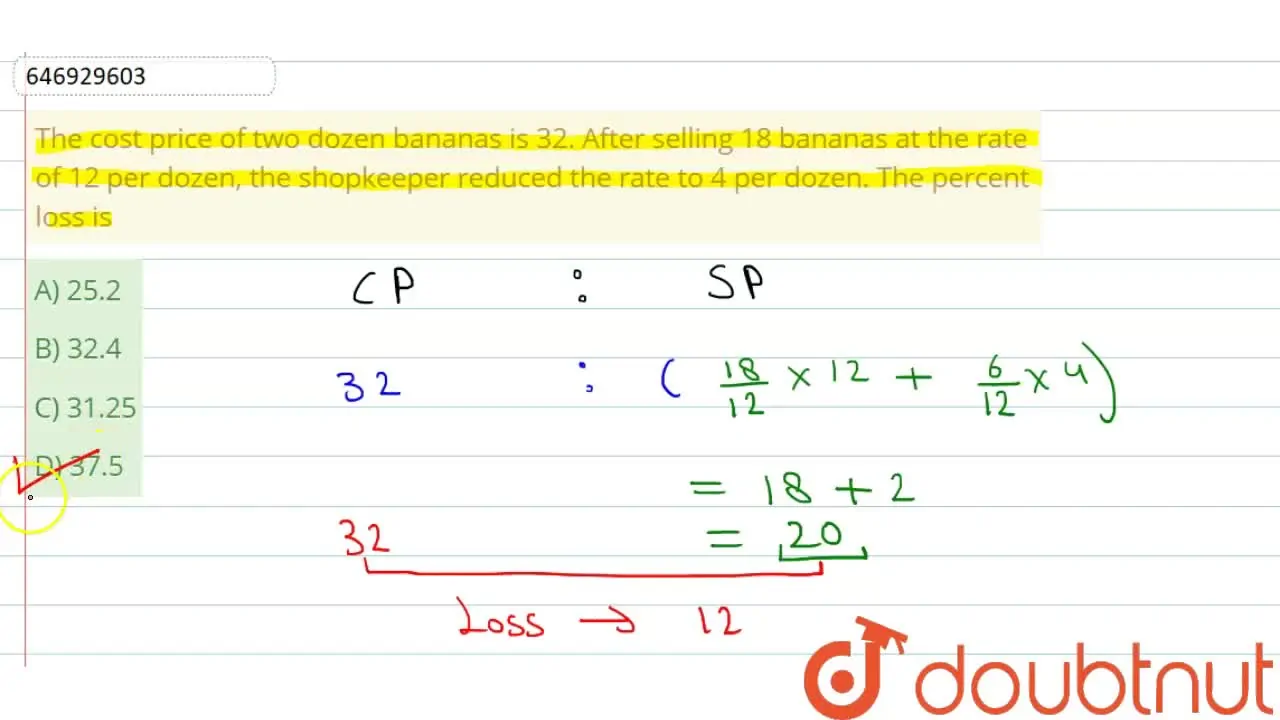 646929603
The cost price of two dozen bananas is 32. After selling 18 bananas at the rate
of 12 per dozen, the shopkeeper reduced the rate to 4 per dozen. The percent
loss is
A) 25.2
B) 32.4
C) 31.25
D) 37.5
CP : SP
32 : ( 18/12 × 12 + 6/12 × 4 )
= 18 + 2
32 = 20
Loss → 12
doubtnut